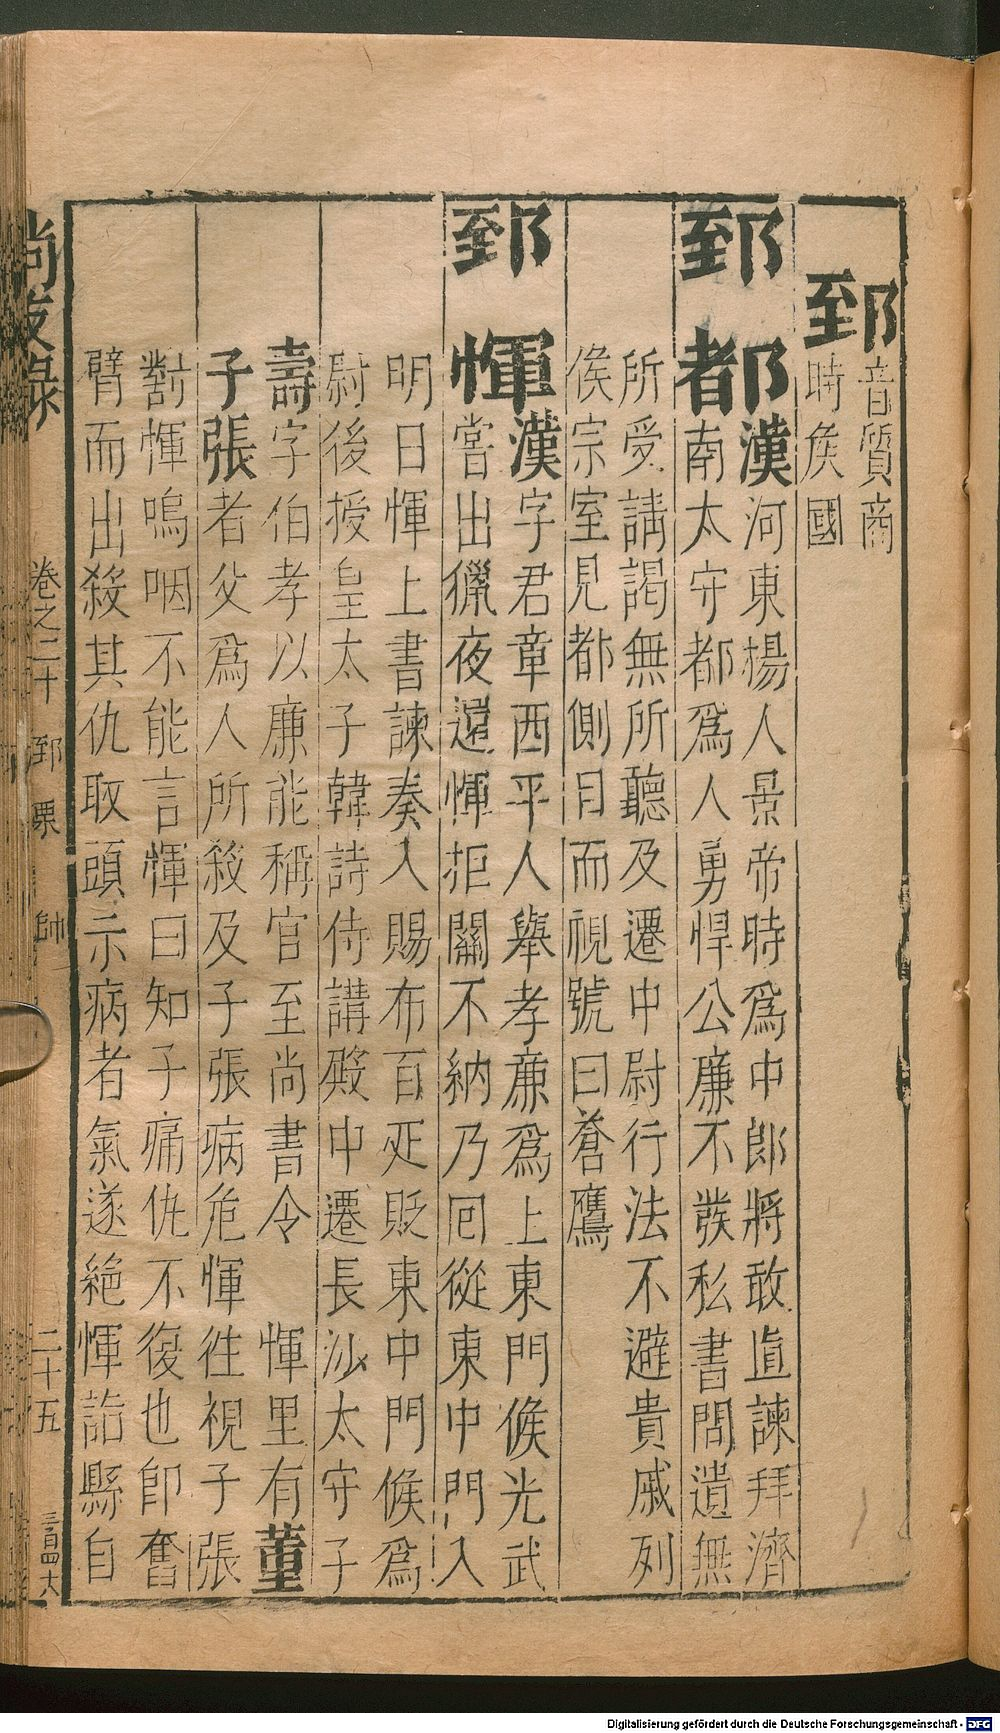 郅
音質商
時矦國
郅都漢河東楊人景帝時爲中郎將敢直諫拜濟
南太守都爲人勇悍公廉不發私書問遺無
所受請謁無所聽及遷中尉行法不避貴戚列
矦宗室見都側目而視號曰蒼鷹
郅惲漢字君章西平人舉孝廉爲上東門候光武
嘗出獵夜還惲拒關不納乃囘從東中門入
明日惲上書諫奏入賜布百疋貶東中門候爲
尉後授皇太子韓詩侍講殿中遷長沙太守子
壽字伯孝以廉能稱官至尚書令 惲里有董
子張者父爲人所殺及子張病危惲往視子張
對惲嗚咽不能言惲曰知子痛仇不復也卽奮
臂而出殺其仇取頭示病者氣遂絕惲詣縣自
尚友錄 卷之二十 郅 栗 帥 二十五 三百四六
Digitalisierung gefördert durch die Deutsche Forschungsgemeinschaft - DFG